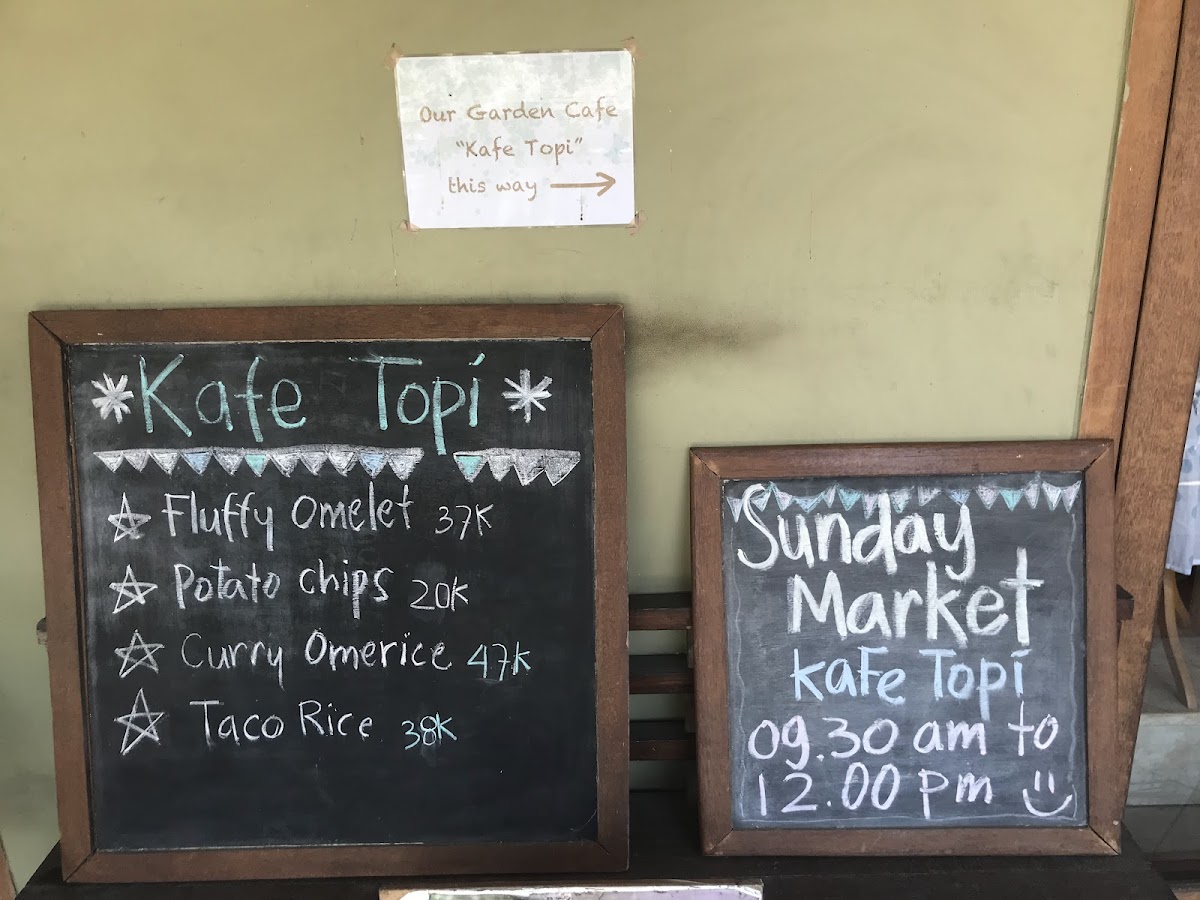 Our Garden Cafe
"Kafe Topi"
this way
Kafe Topi
Fluffy Omelet 37K
Potato chips 20K
Curry Omerice 47K
Taco Rice 38K
Sunday
Market
kaFe Topi
09.30 am to
12.00 pm